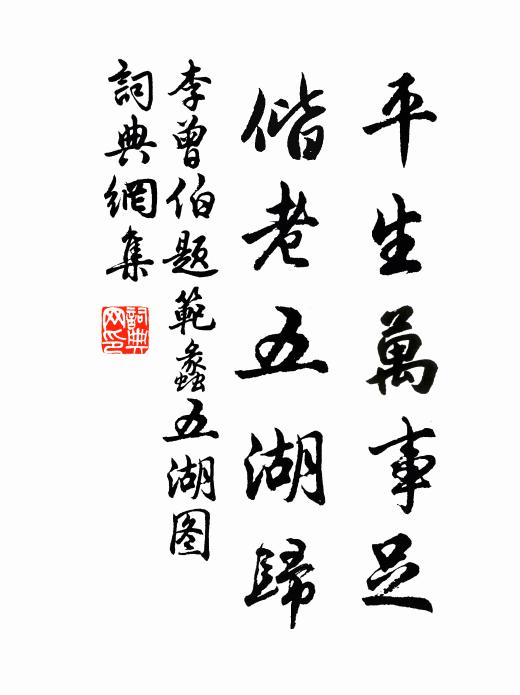 平生萬事足
偕老五湖歸
李曾伯题範蠡五湖图
詞典網集
詞典网印